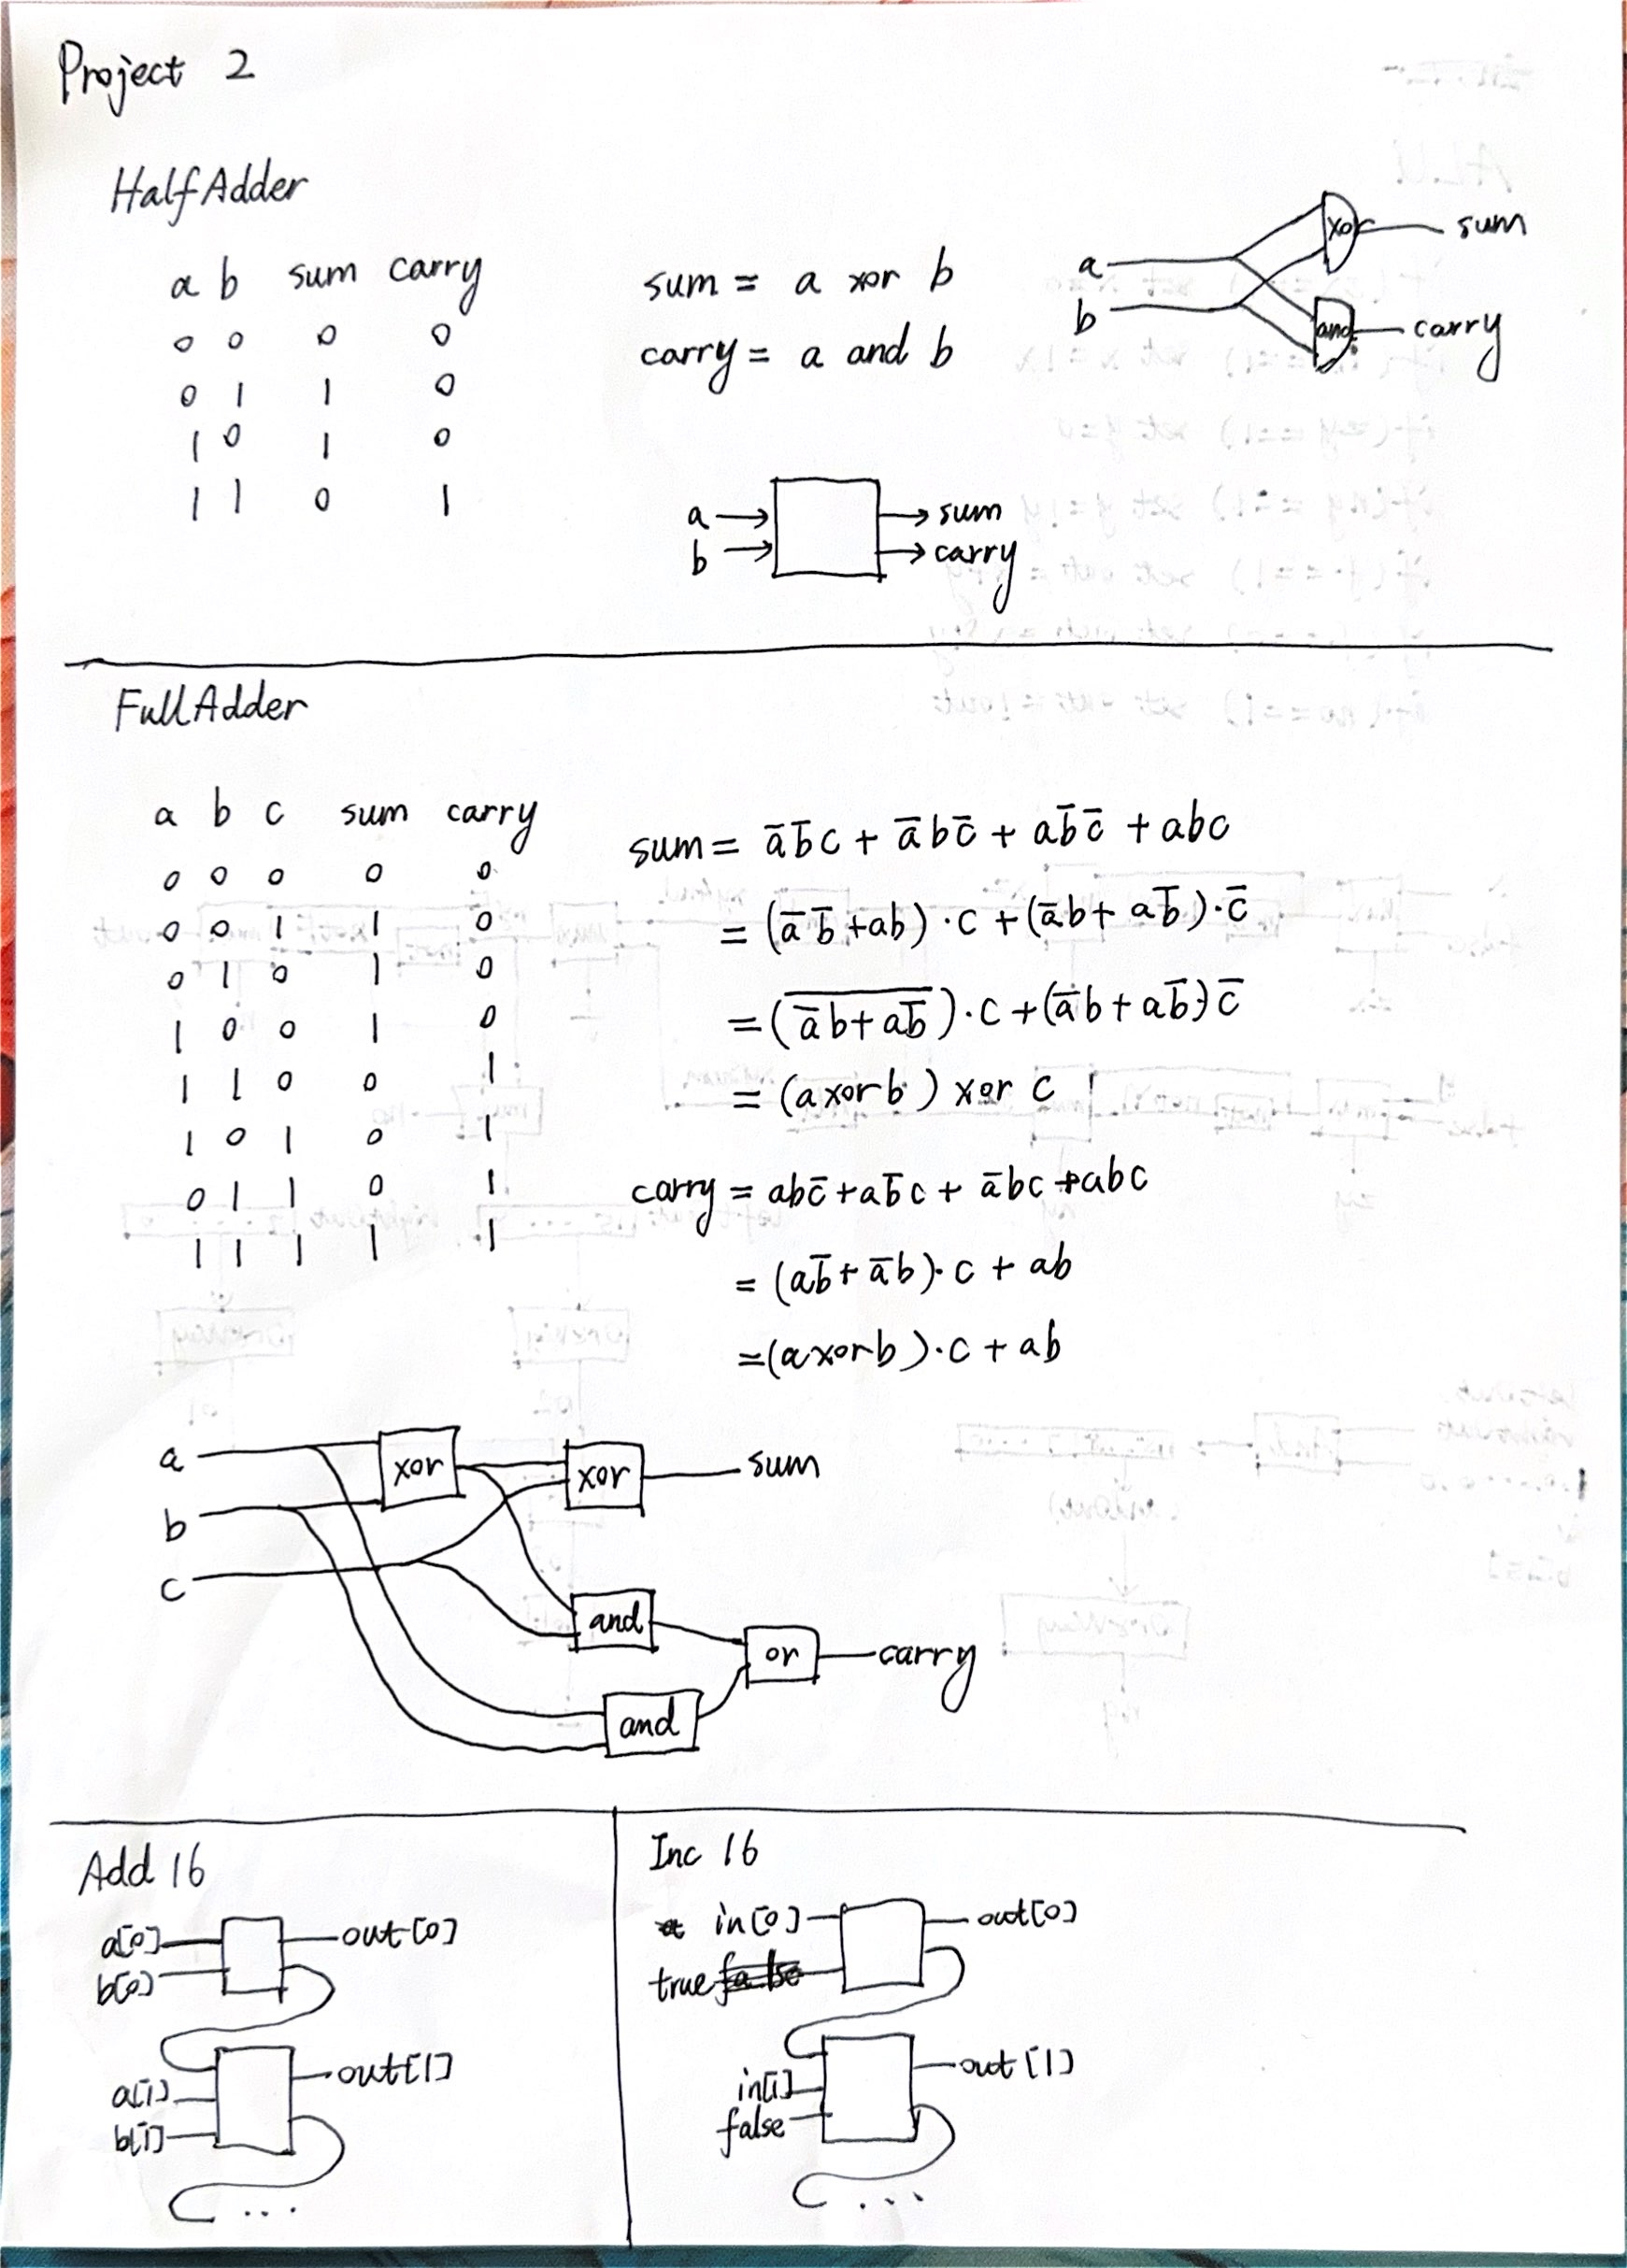 Project 2
HalfAdder
a b sum carry
0 0 0 0
0 1 1 0
1 0 1 0
1 1 0 1
sum = a xor b
carry = a and b
a
b
xor
sum
and
carry
a
b
sum
carry
FullAdder
a b c sum carry
0 0 0 0 0
0 0 1 1 0
0 1 0 1 0
1 0 0 1 0
1 1 0 0 1
1 0 1 0 1
0 1 1 0 1
1 1 1 1 1
sum = a̅b̅c + a̅bc̅ + ab̅c̅ + abc
= (a̅b̅+ab)·c + (a̅b+ab̅)·c̅
= (\overline{a̅b+ab̅})·c + (a̅b+ab̅)c̅
= (a xor b) xor c
carry = abc̅+ab̅c + a̅bc +abc
= (ab̅+a̅b)·c + ab
=(a xor b)·c + ab
a
b
c
xor
xor
sum
and
and
or
carry
Add 16
a[0]
b[0]
out[0]
a[1]
b[1]
out[1]
...
Inc 16
in[0]
true
out[0]
in[1]
false
out[1]
...